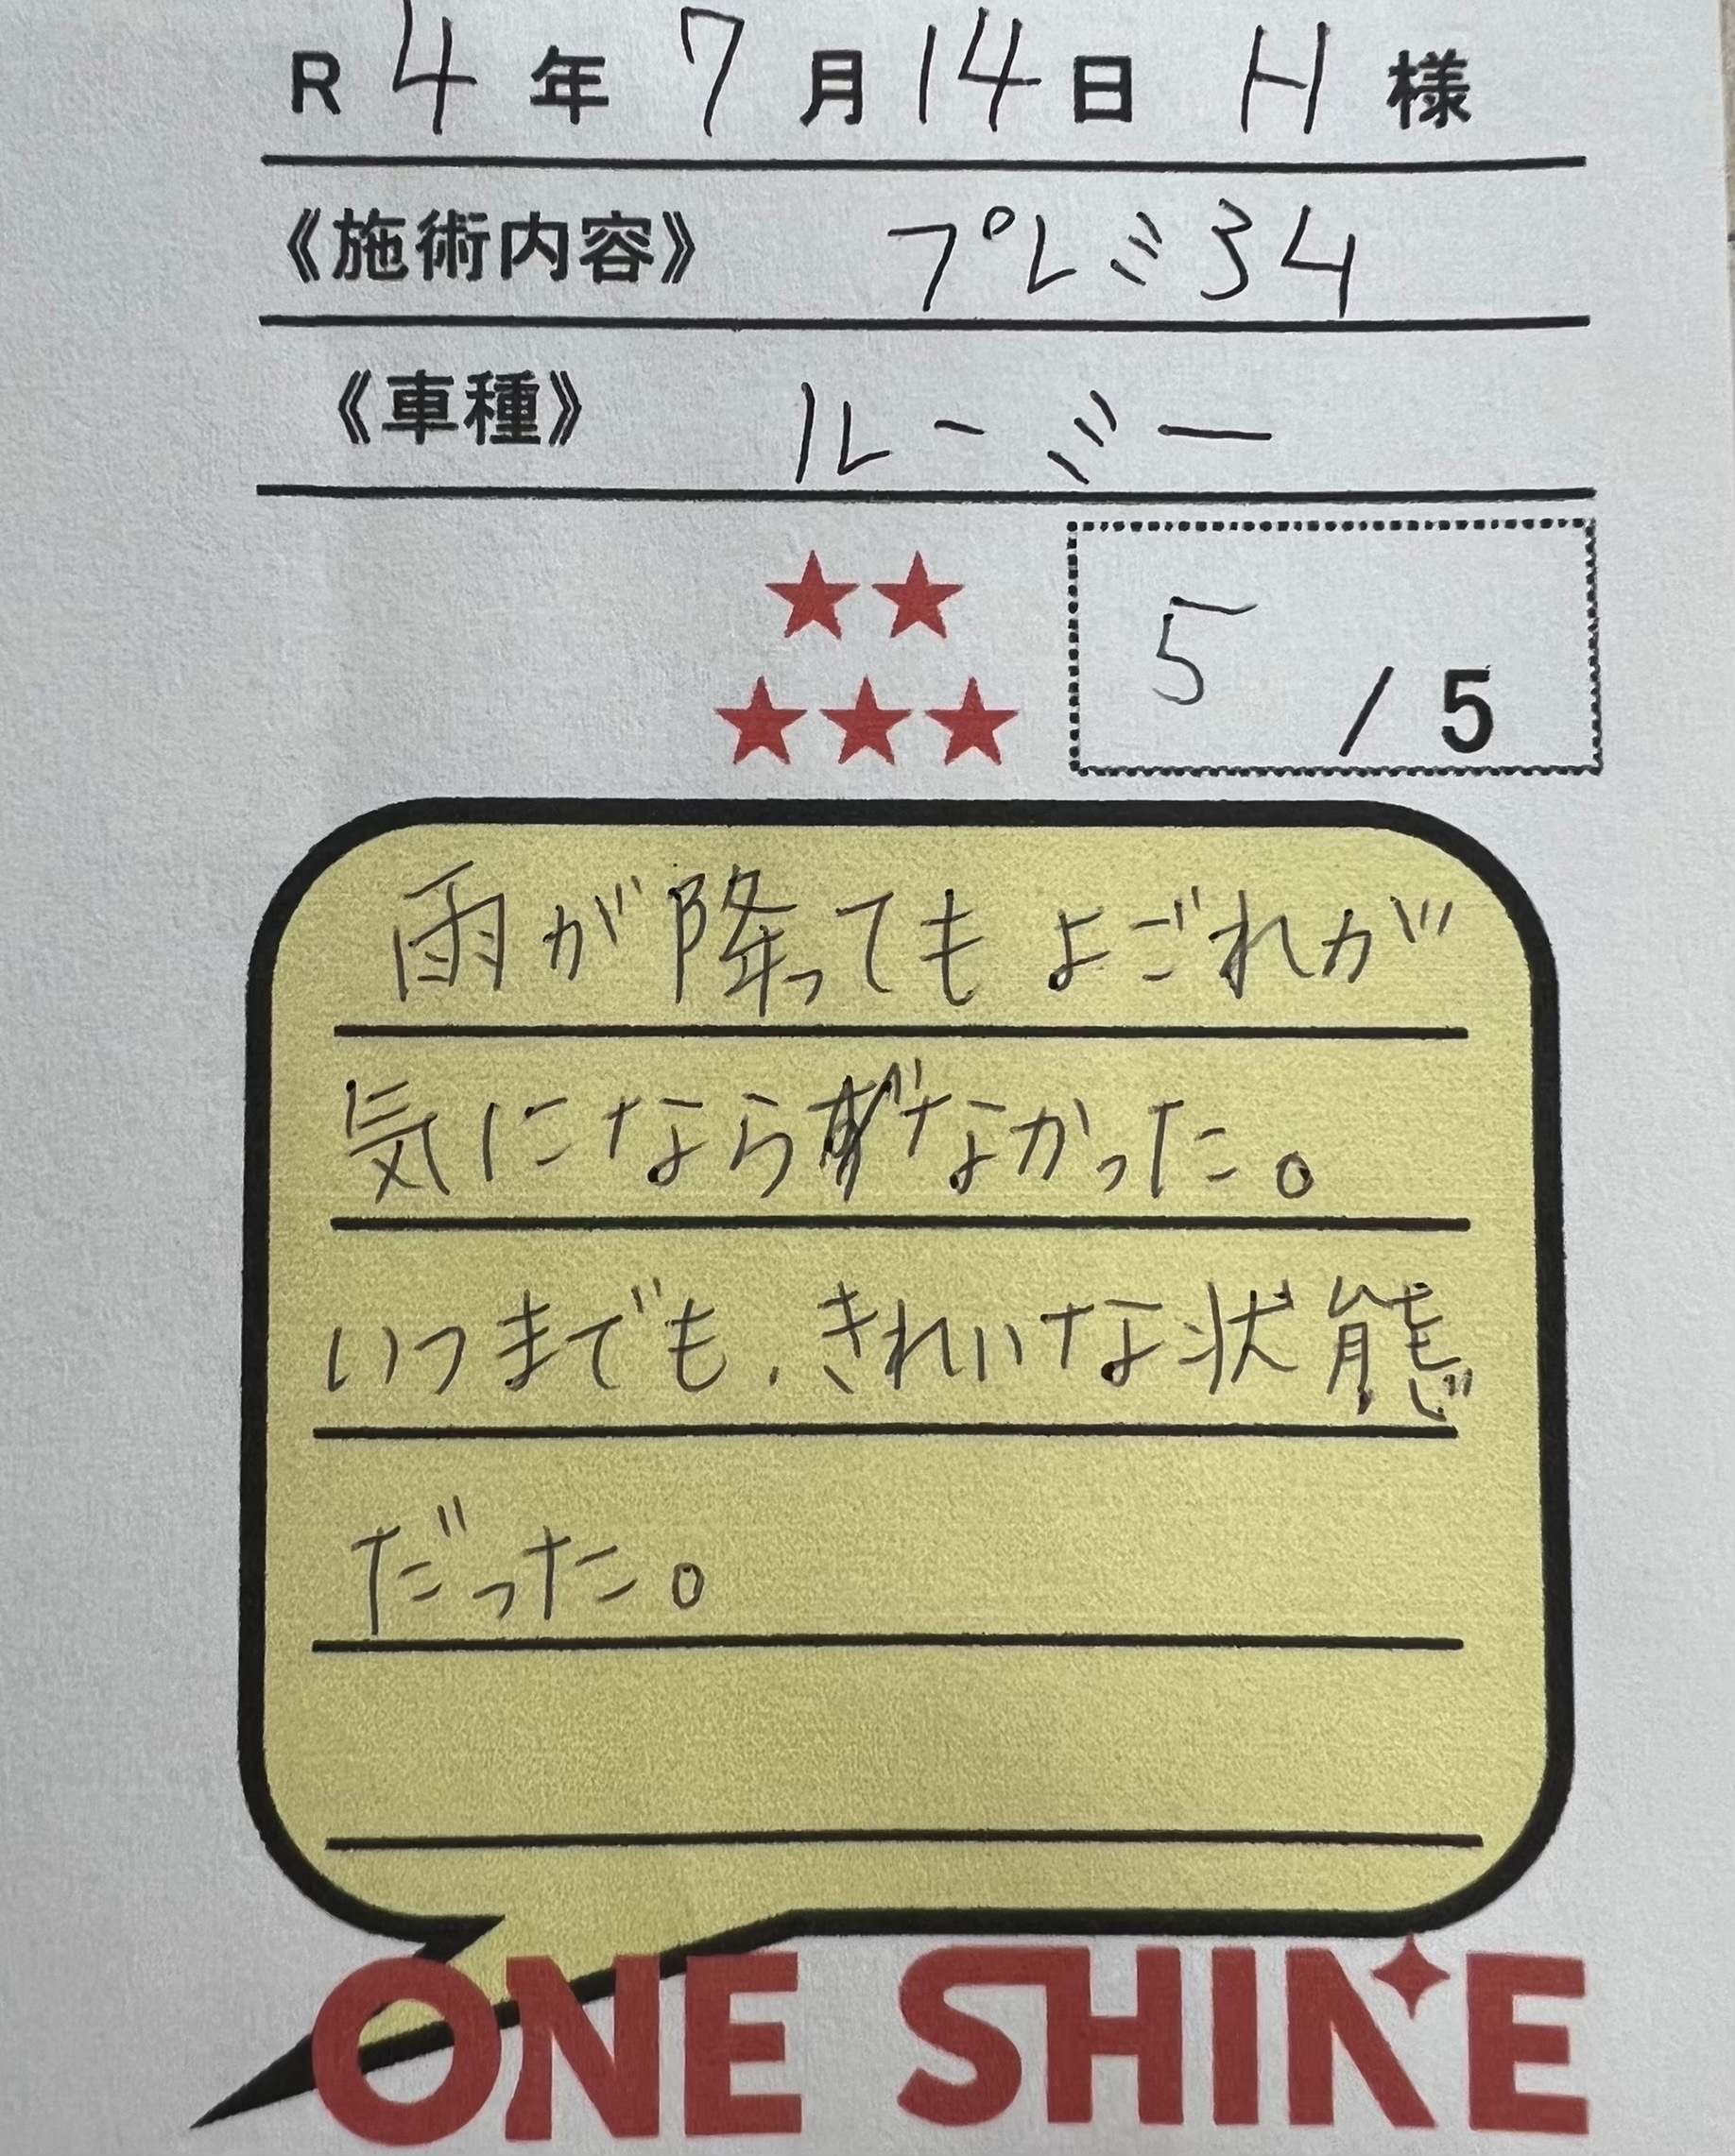 R 4 年 7 月 14 日 H 様
《施術内容》 プレミ34
《車種》 ルーミー
5 / 5
雨が降ってもよごれが
気にならなかった。
いつまでも、きれいな状態
だった。
ONE SHINE